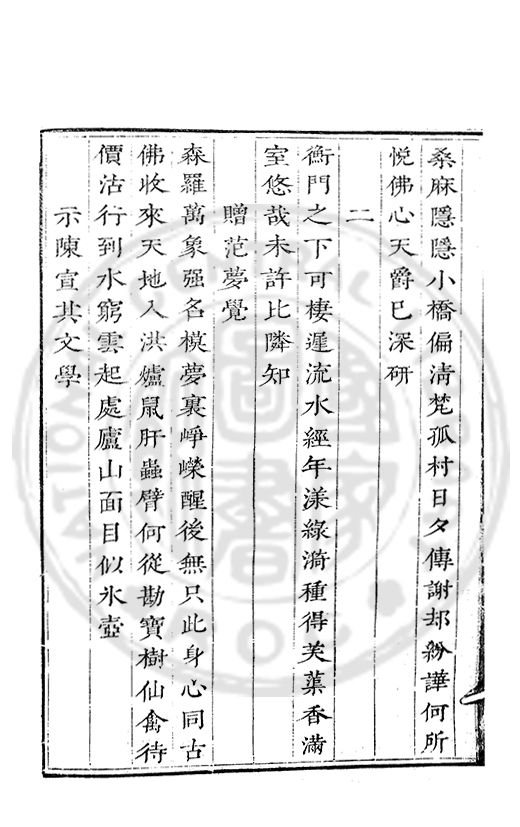 桑麻隱隱小橋偏清梵孤村日夕傳謝却紛譁何所
悅佛心天爵已深研
二
衡門之下可棲遲流水經年漾綠漪種得芙蕖香滿
室悠哉未許比隣知
贈范夢覺
森羅萬象强名模夢裏崢嶸醒後無只此身心同古
佛收來天地入洪爐鼠肝蟲臂何從勘寶樹仙禽待
價沽行到水窮雲起處廬山面目似氷壺
示陳宣其文學